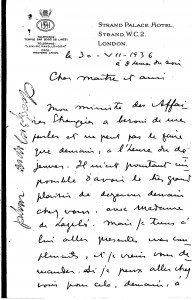 STRAND PALACE HOTEL,
STRAND, W.C.2.
LONDON.
le 30-VII-1936
à 8 heures du soir
Cher maître et ami
Mon ministre des Affai
res Etrangères a besoin de me
parler et ne peut pas le faire
que demain, à l'heure du dé
jeuner. Il m'est pourtant im
possible d'avoir le très grand
plaisir de déjeuner demain
chez vous, avec Madame
de
mais je tiens à
lui aller présenter mes com
pliments, et je viens vous de
mander si je peux aller chez
vous pour cela, demain, à